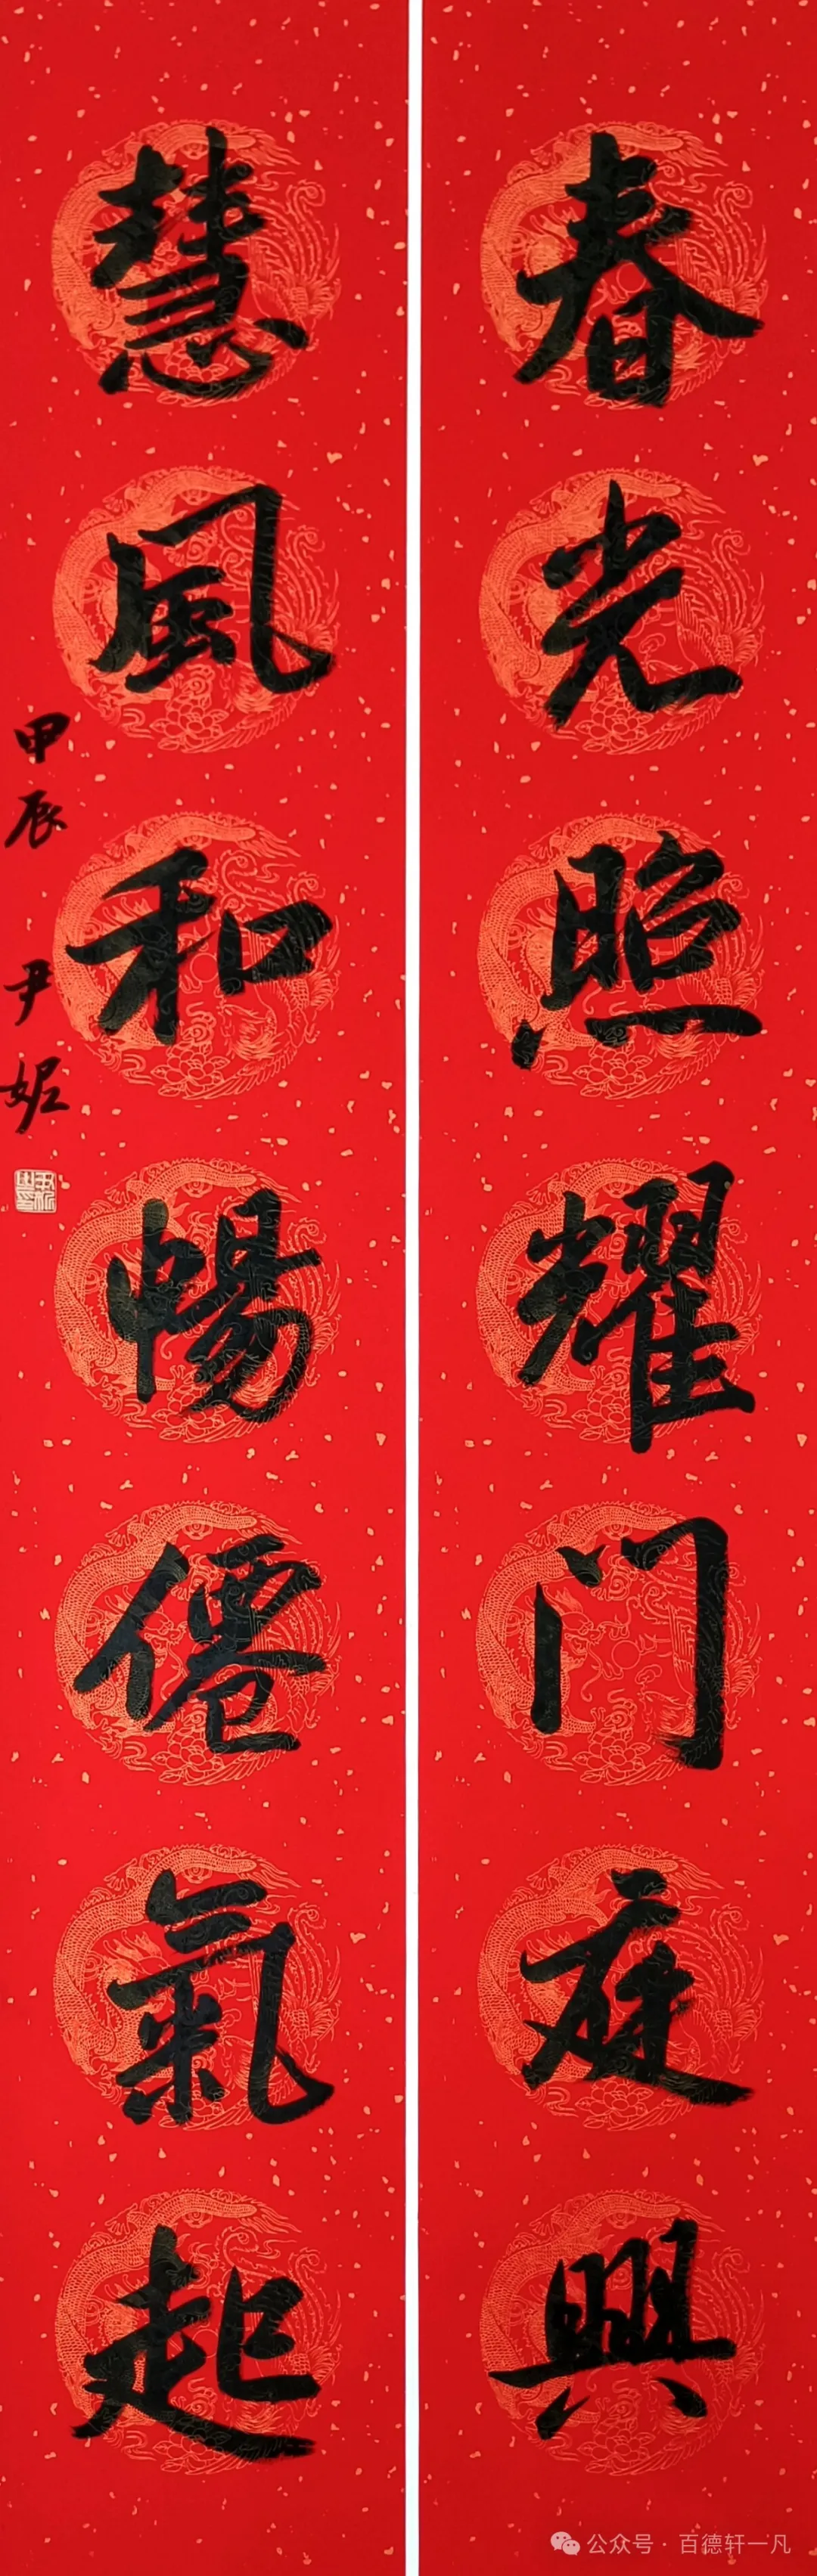 春光照耀门庭興
慧風和暢僊氣起
甲辰 尹妮
公众号·百德轩一凡